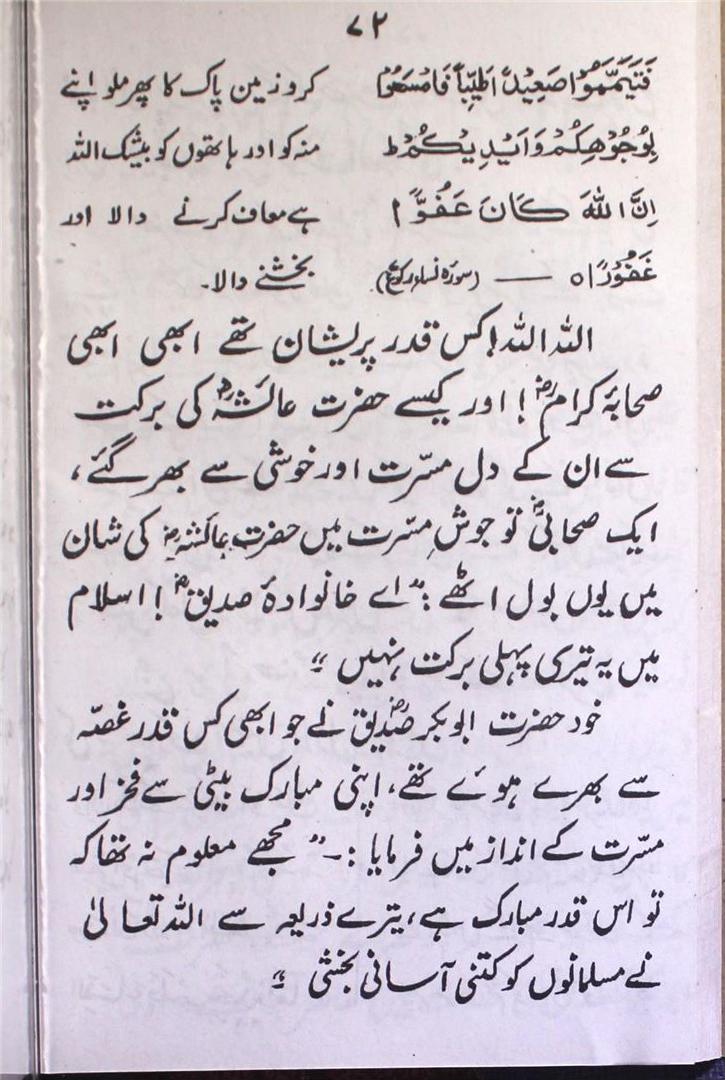 ۷۲
فَتَيَمَّمُوْا صَعِيْدًا طَيِّبًا فَامْسَحُوْا کرو زمین پاک کا پھر ملو اپنے
بِوُجُوْهِكُمْ وَاَيْدِيْكُمْ ط منہ کو اور ہاتھوں کو بیشک اللہ
اِنَّ اللهَ كَانَ عَفُوًّا ہے معاف کرنے والا اور
غَفُوْرًا ٥ — (سورہ نساء رکوع) بخشنے والا۔
اللہ اللہ! کس قدر پریشان تھے ابھی ابھی
صحابۂ کرامؓ! اور کیسے حضرت عائشہؓ کی برکت
سے ان کے دل مسّرت اور خوشی سے بھر گئے،
ایک صحابیؓ تو جوشِ مسّرت میں حضرت عائشہؓ کی شان
میں یوں بول اٹھے: ”اے خانوادۂ صدیقؓ! اسلام
میں یہ تیری پہلی برکت نہیں“
خود حضرت ابوبکر صدّیقؓ نے جو ابھی کس قدر غصّہ
سے بھرے ہوئے تھے، اپنی مبارک بیٹی سے فخر اور
مسّرت کے انداز میں فرمایا :- ”مجھے معلوم نہ تھا کہ
تو اس قدر مبارک ہے، تیرے ذریعہ سے اللہ تعالیٰ
نے مسلمانوں کو کتنی آسانی بخشی“